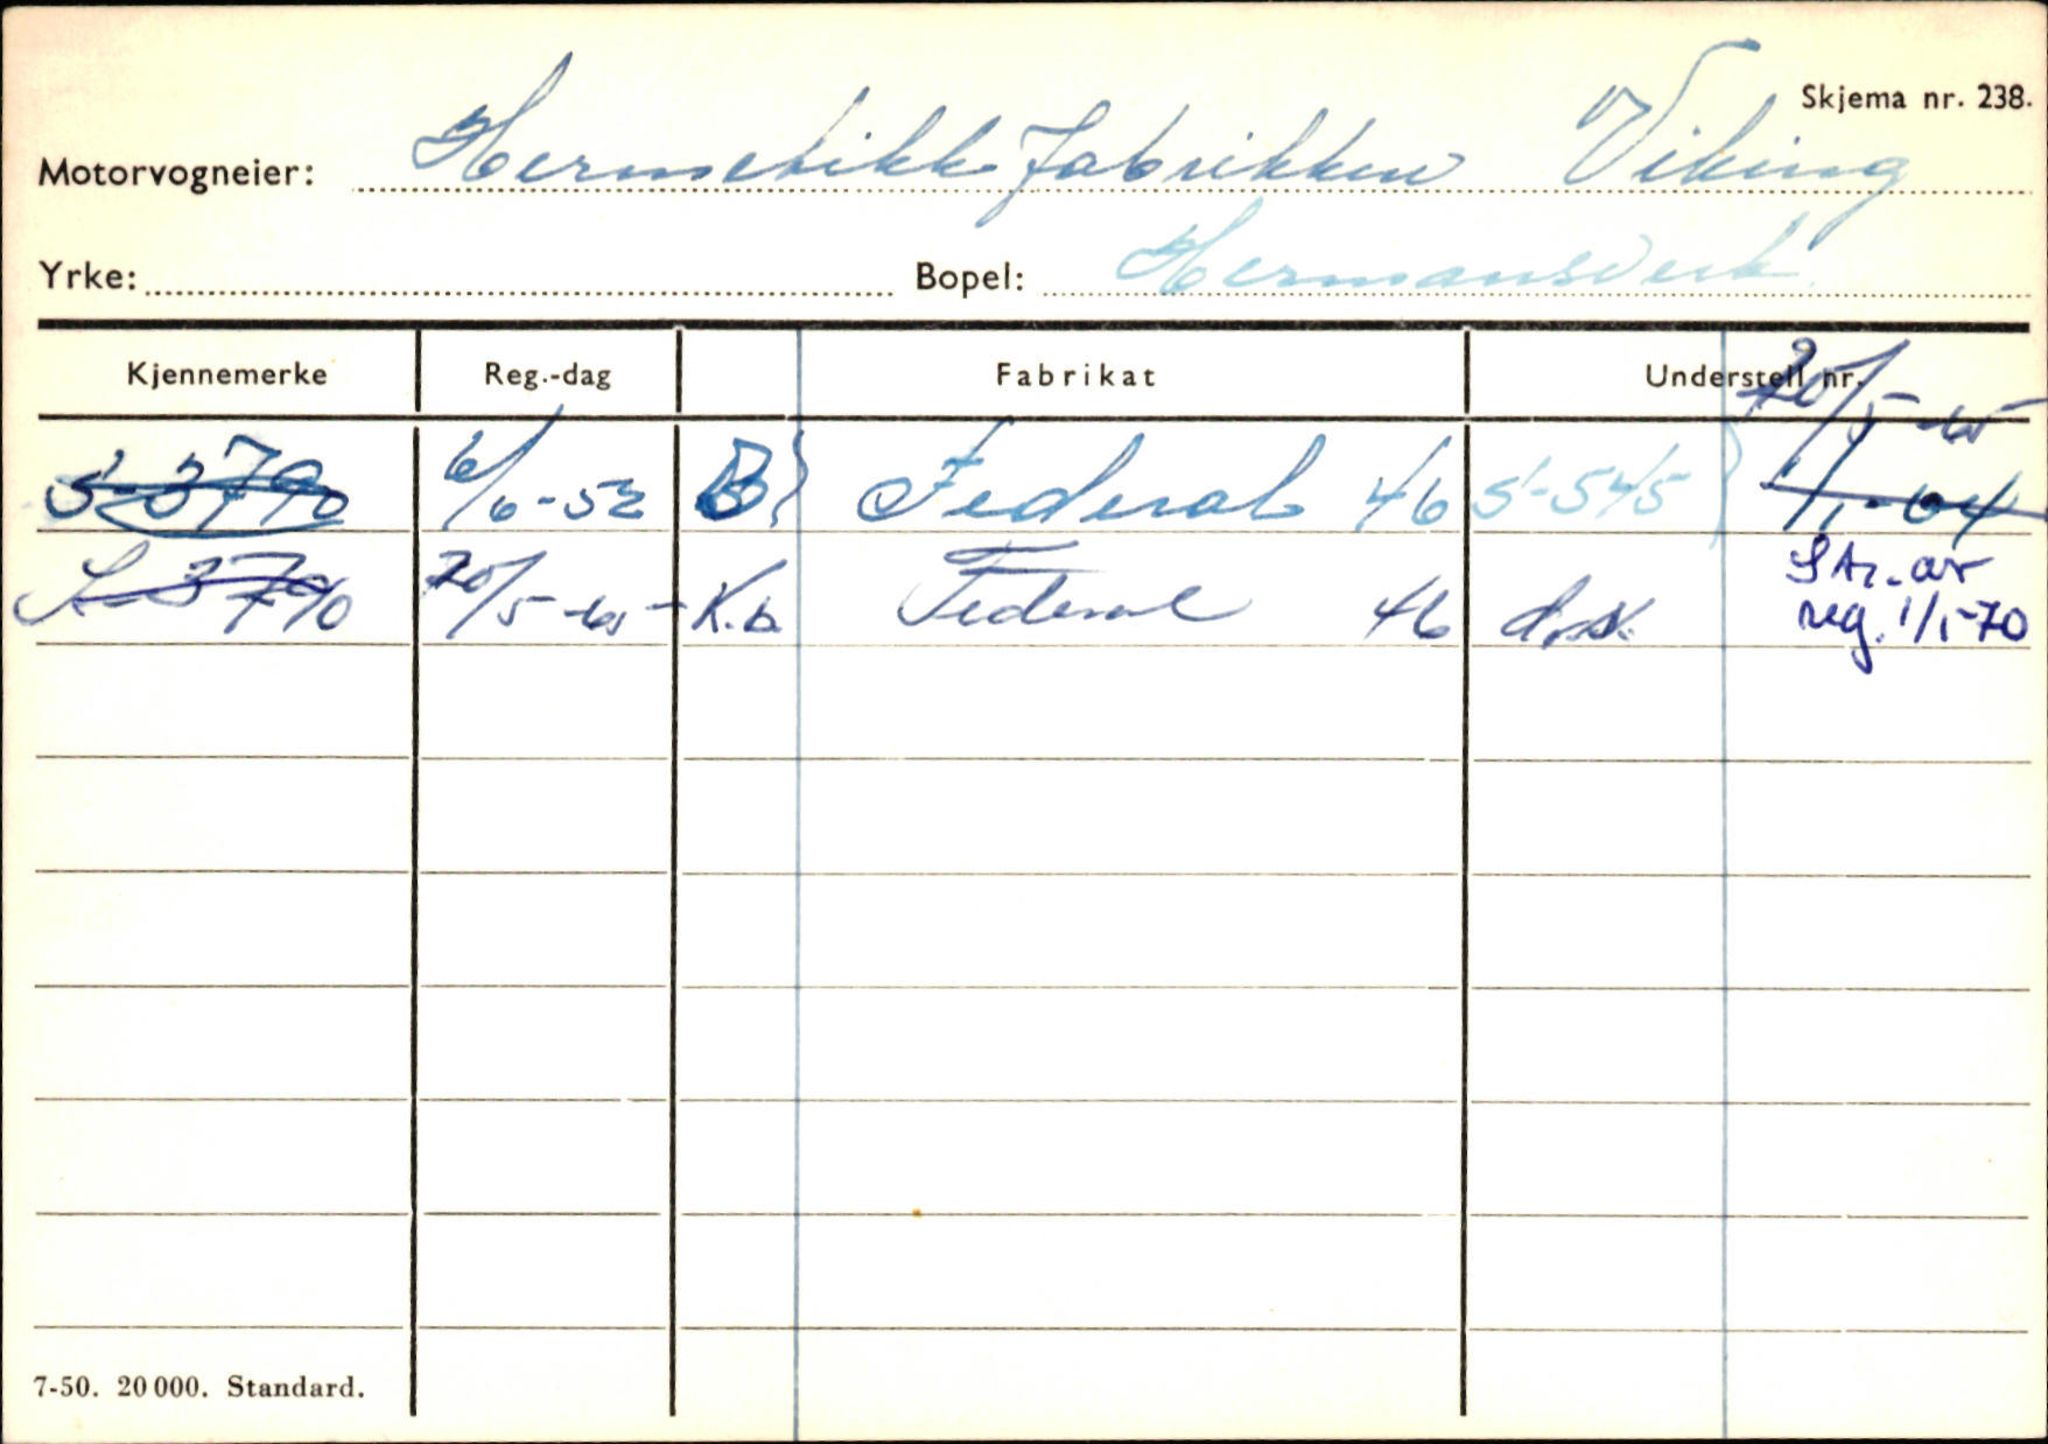 Skjema nr. 238.
Motorvogneier: Hermetikkfabrikken Viking
Yrke: Bopel: Hermansverk
Kjennemerke Reg.-dag Fabrikat Understell nr.
20/5-65
S-3790 6/6-52 B Federal 46 S-545 1/1-64
S-3790 20/5-65 K.b Federal 46 d.s. Str. av
reg. 1/1-70
7-50. 20 000. Standard.